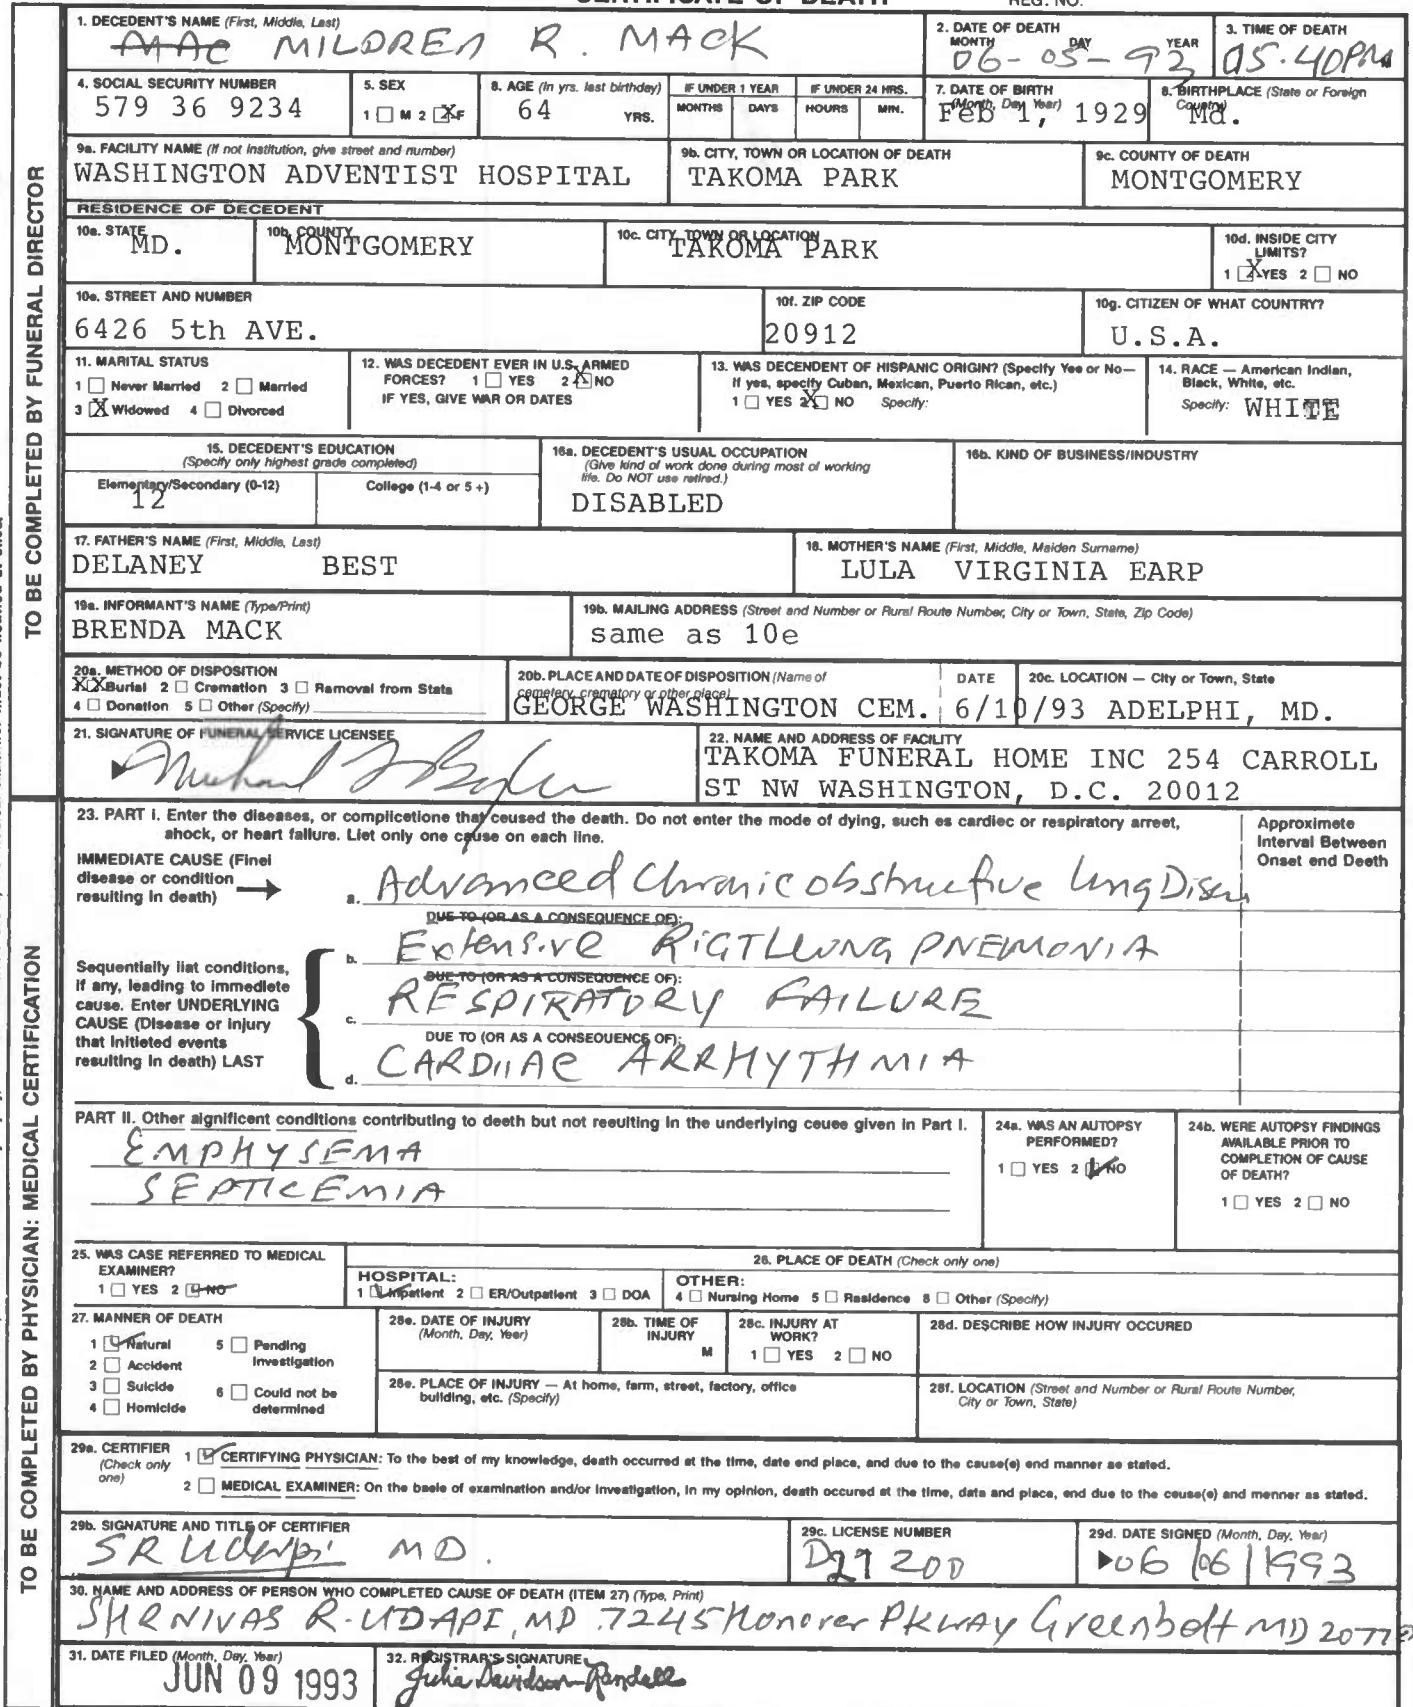 CERTIFICATE OF DEATH REG. NO.
TO BE COMPLETED BY FUNERAL DIRECTOR
1. DECEDENT'S NAME (First, Middle, Last)
MILDRED R. MACK
2. DATE OF DEATH
MONTH DAY YEAR
06-05-93
3. TIME OF DEATH
05.40PM
4. SOCIAL SECURITY NUMBER
579 36 9234
5. SEX
1 M 2 X F
6. AGE (In yrs. last birthday)
64 YRS.
IF UNDER 1 YEAR
MONTHS DAYS
IF UNDER 24 HRS.
HOURS MIN.
7. DATE OF BIRTH
(Month, Day, Year)
Feb 1, 1929
8. BIRTHPLACE (State or Foreign
Country)
Md.
9a. FACILITY NAME (If not institution, give street and number)
WASHINGTON ADVENTIST HOSPITAL
9b. CITY, TOWN OR LOCATION OF DEATH
TAKOMA PARK
9c. COUNTY OF DEATH
MONTGOMERY
RESIDENCE OF DECEDENT
10a. STATE
MD.
10b. COUNTY
MONTGOMERY
10c. CITY, TOWN OR LOCATION
TAKOMA PARK
10d. INSIDE CITY
LIMITS?
1 X YES 2 NO
10e. STREET AND NUMBER
6426 5th AVE.
10f. ZIP CODE
20912
10g. CITIZEN OF WHAT COUNTRY?
U.S.A.
11. MARITAL STATUS
1 Never Married 2 Married
3 X Widowed 4 Divorced
12. WAS DECEDENT EVER IN U.S. ARMED
FORCES? 1 YES 2 X NO
IF YES, GIVE WAR OR DATES
13. WAS DECENDENT OF HISPANIC ORIGIN? (Specify Yes or No—
If yes, specify Cuban, Mexican, Puerto Rican, etc.)
1 YES 2 X NO Specify:
14. RACE — American Indian,
Black, White, etc.
Specify: WHITE
15. DECEDENT'S EDUCATION
(Specify only highest grade completed)
Elementary/Secondary (0-12) College (1-4 or 5 +)
12
16a. DECEDENT'S USUAL OCCUPATION
(Give kind of work done during most of working
life. Do NOT use retired.)
DISABLED
16b. KIND OF BUSINESS/INDUSTRY
17. FATHER'S NAME (First, Middle, Last)
DELANEY BEST
18. MOTHER'S NAME (First, Middle, Maiden Surname)
LULA VIRGINIA EARP
19a. INFORMANT'S NAME (Type/Print)
BRENDA MACK
19b. MAILING ADDRESS (Street and Number or Rural Route Number, City or Town, State, Zip Code)
same as 10e
20a. METHOD OF DISPOSITION
XX Burial 2 Cremation 3 Removal from State
4 Donation 5 Other (Specify)
20b. PLACE AND DATE OF DISPOSITION (Name of
cemetery, crematory or other place)
GEORGE WASHINGTON CEM.
DATE
6/10/93
20c. LOCATION — City or Town, State
ADELPHI, MD.
21. SIGNATURE OF FUNERAL SERVICE LICENSEE
22. NAME AND ADDRESS OF FACILITY
TAKOMA FUNERAL HOME INC 254 CARROLL
ST NW WASHINGTON, D.C. 20012
TO BE COMPLETED BY PHYSICIAN: MEDICAL CERTIFICATION
23. PART I. Enter the diseases, or complications that caused the death. Do not enter the mode of dying, such as cardiac or respiratory arrest,
shock, or heart failure. List only one cause on each line.
Approximate
Interval Between
Onset and Death
IMMEDIATE CAUSE (Final
disease or condition
resulting in death)
a. Advanced Chronic obstructive lung
DUE TO (OR AS A CONSEQUENCE OF):
b. Extensive RIGT LUNG PNEMONIA
DUE TO (OR AS A CONSEQUENCE OF):
c. RESPIRATORY FAILURE
DUE TO (OR AS A CONSEQUENCE OF):
d. CARDIIAC ARRHYTHMIA
Sequentially list conditions,
if any, leading to immediate
cause. Enter UNDERLYING
CAUSE (Disease or injury
that initiated events
resulting in death) LAST
PART II. Other significant conditions contributing to death but not resulting in the underlying cause given in Part I.
EMPHYSEMA
SEPTICEMIA
24a. WAS AN AUTOPSY
PERFORMED?
1 YES 2 NO
24b. WERE AUTOPSY FINDINGS
AVAILABLE PRIOR TO
COMPLETION OF CAUSE
OF DEATH?
1 YES 2 NO
25. WAS CASE REFERRED TO MEDICAL
EXAMINER?
1 YES 2 NO
26. PLACE OF DEATH (Check only one)
HOSPITAL:
1 Inpatient 2 ER/Outpatient 3 DOA
OTHER:
4 Nursing Home 5 Residence 6 Other (Specify)
27. MANNER OF DEATH
1 Natural 5 Pending
Investigation
2 Accident
3 Suicide 6 Could not be
determined
4 Homicide
28a. DATE OF INJURY
(Month, Day, Year)
28b. TIME OF
INJURY
M
28c. INJURY AT
WORK?
1 YES 2 NO
28d. DESCRIBE HOW INJURY OCCURED
28e. PLACE OF INJURY — At home, farm, street, factory, office
building, etc. (Specify)
28f. LOCATION (Street and Number or Rural Route Number,
City or Town, State)
29a. CERTIFIER
(Check only
one)
1 CERTIFYING PHYSICIAN: To the best of my knowledge, death occurred at the time, date and place, and due to the cause(s) and manner as stated.
2 MEDICAL EXAMINER: On the basis of examination and/or investigation, in my opinion, death occured at the time, data and place, and due to the cause(s) and manner as stated.
29b. SIGNATURE AND TITLE OF CERTIFIER
SR Udapi MD.
29c. LICENSE NUMBER
D29200
29d. DATE SIGNED (Month, Day, Year)
06/06/1993
30. NAME AND ADDRESS OF PERSON WHO COMPLETED CAUSE OF DEATH (ITEM 27) (Type, Print)
SHRNIVAS R. UDAPI, MD. 7245 Honover PKWAY Greenbelt MD 20770
31. DATE FILED (Month, Day, Year)
JUN 09 1993
32. REGISTRAR'S SIGNATURE
Julia Davidson-Randall